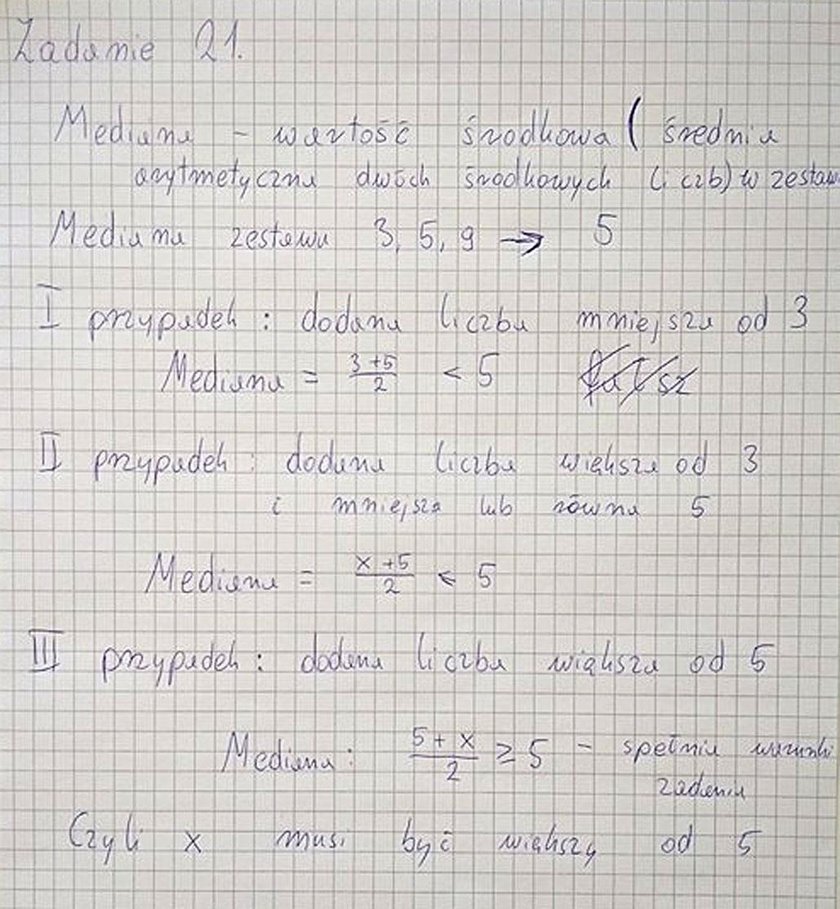 Zadanie 21.
Mediana - wartość środkowa ( średnia
arytmetyczna dwóch środkowych liczb) w zestaw
Mediana zestawu 3, 5, 9 → 5
I przypadek : dodana liczba mniejsza od 3
Mediana = \frac{3+5}{2} < 5 fałsz
II przypadek : dodana liczba większa od 3
i mniejsza lub równa 5
Mediana = \frac{x+5}{2} < 5
III przypadek : dodana liczba większa od 5
Mediana : \frac{5+x}{2} ≥ 5 - spełnia warunki
zadania
Czyli x musi być większy od 5